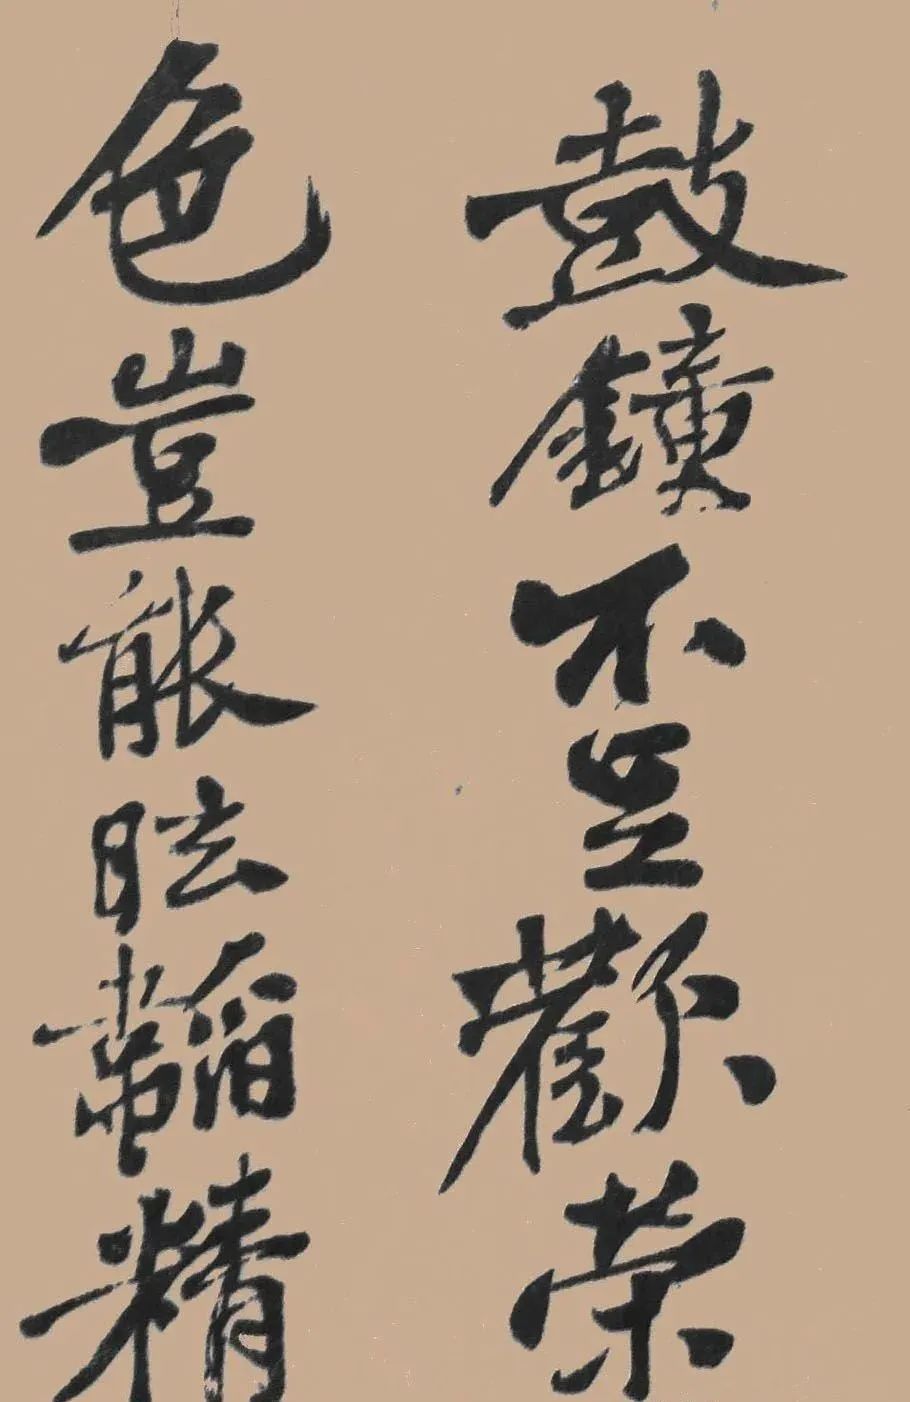 鼓鐘不足歡榮
色豈能眩韜精